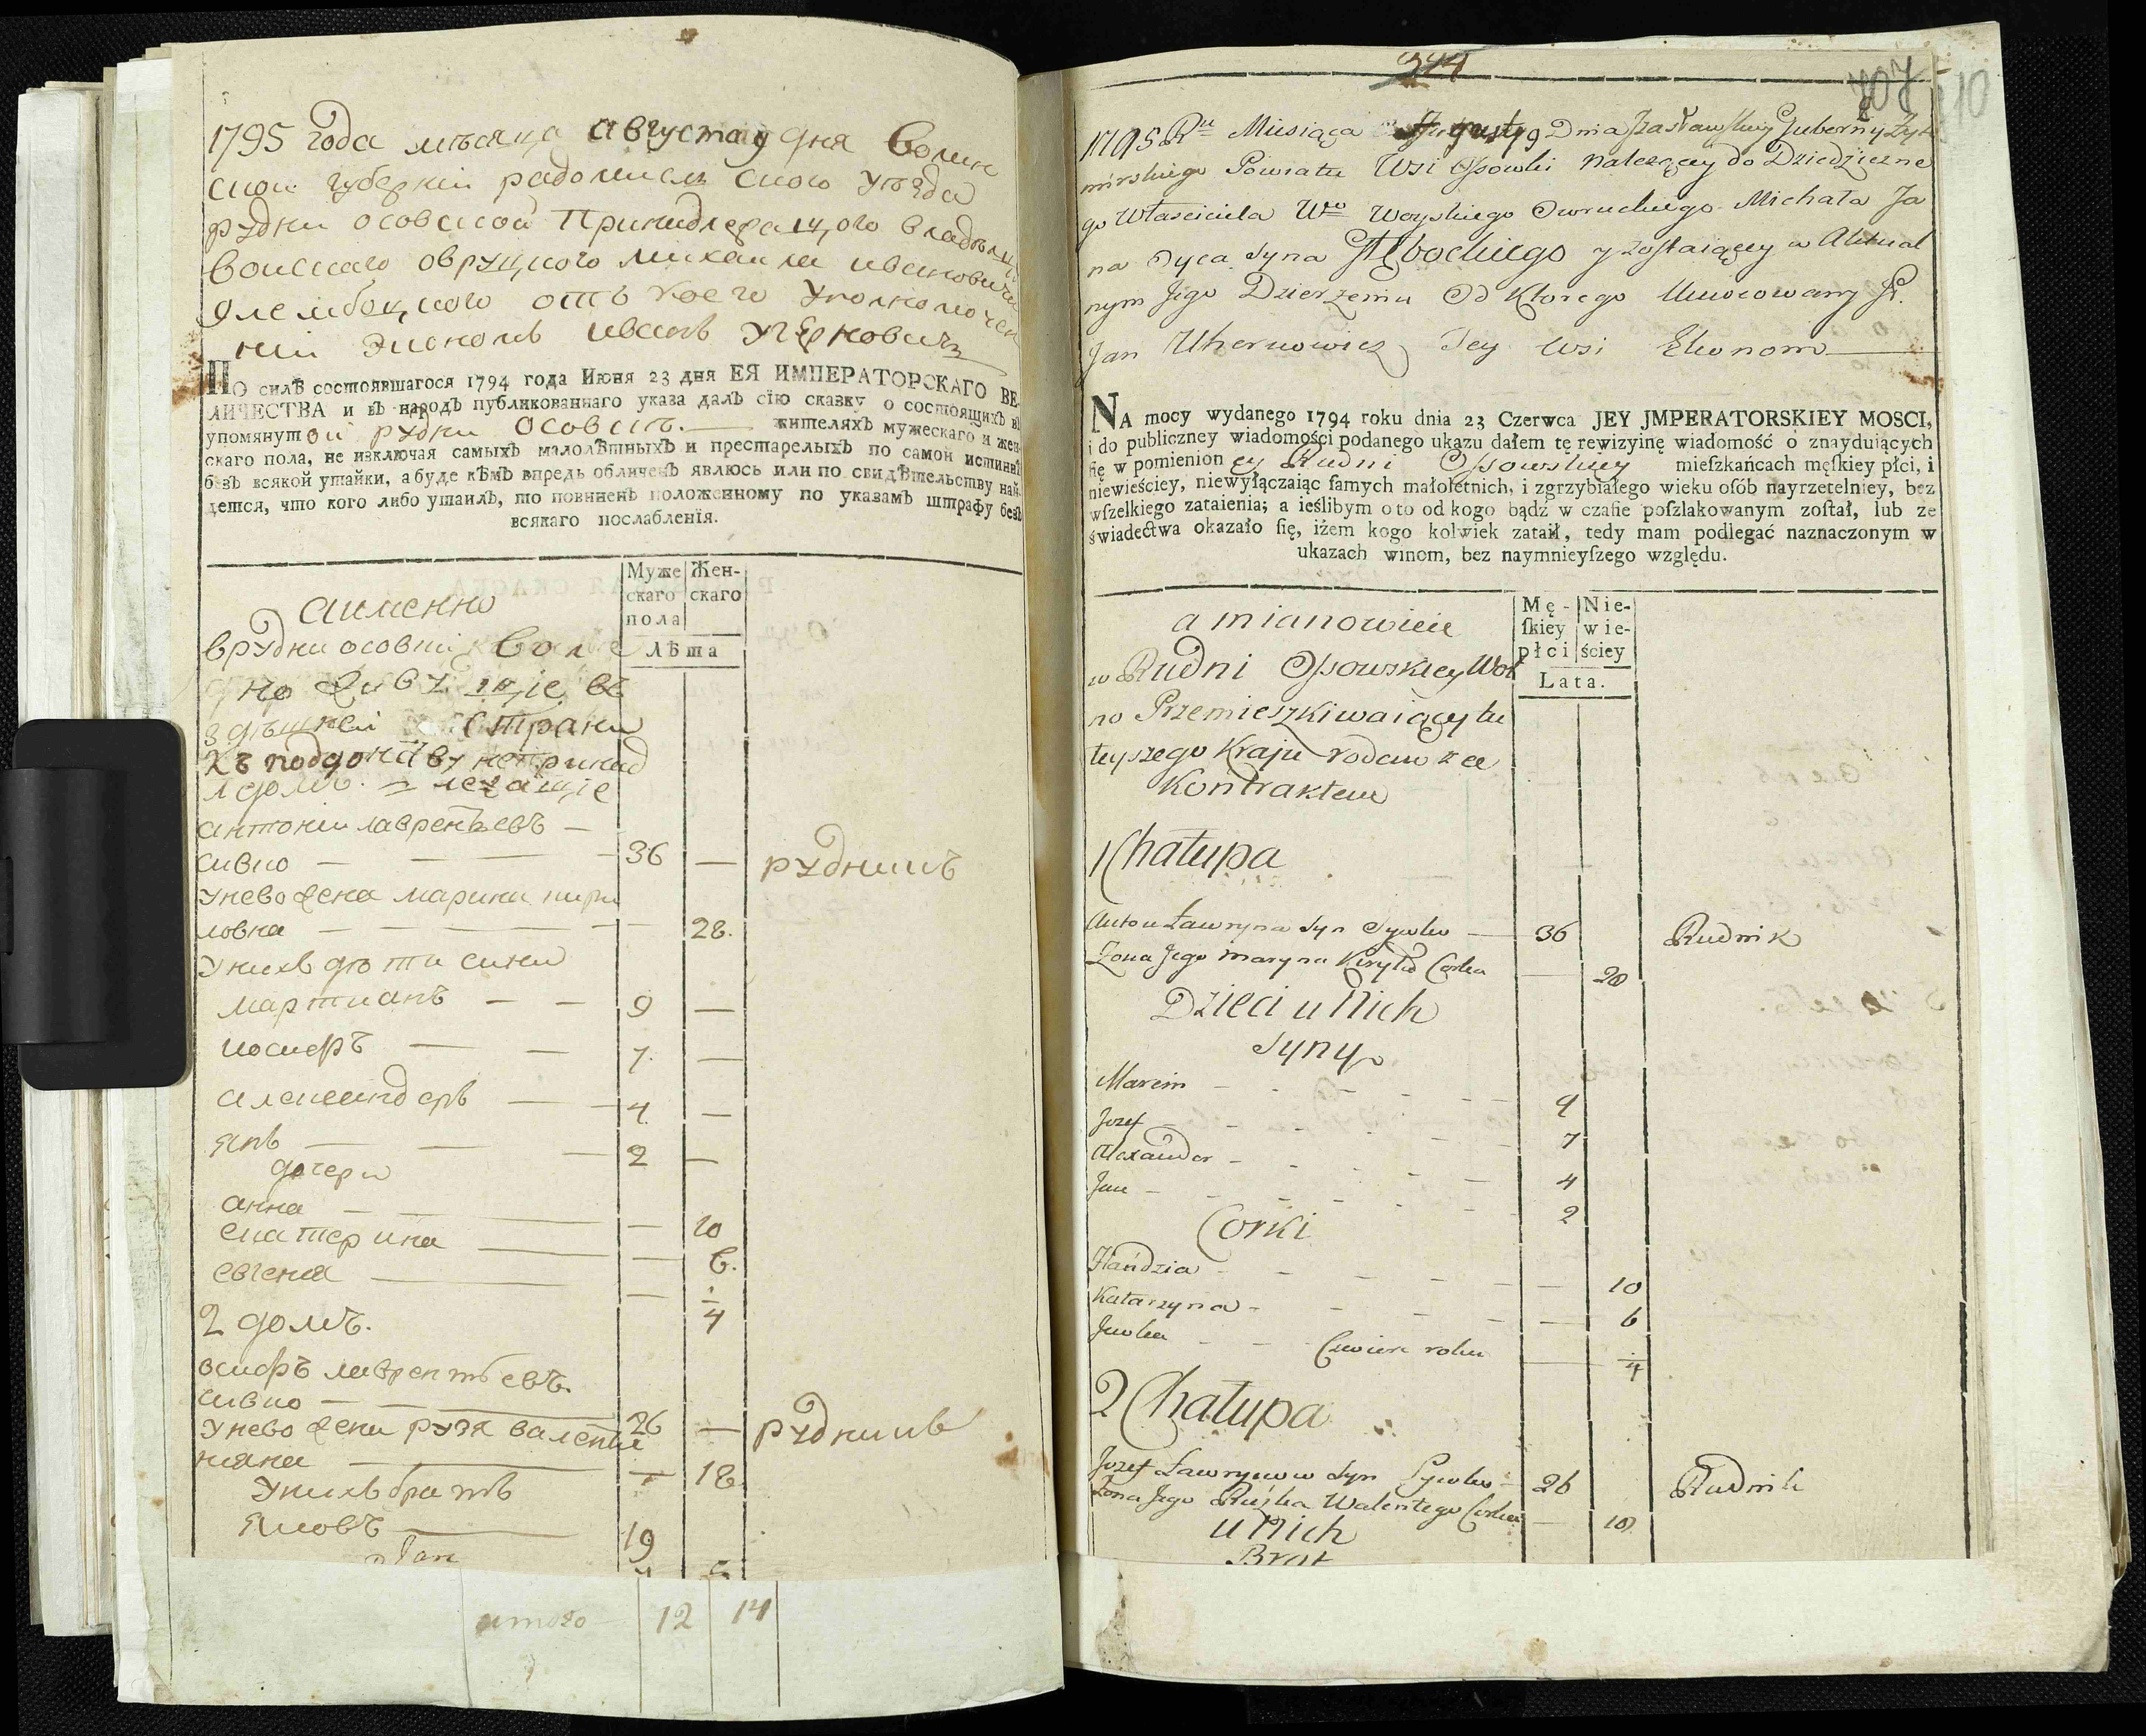 1795 года мѣсяца августа 9 дня Волин
ской губернїи радомисл ского уѣзда
рудни осовской Принадлежащого владѣльцу
войского овруцкого михаила ивановича
Глембоцкого отъ коего уполномочен
ний економъ иванъ угерновичъ
ПО силѣ состоявшагося 1794 года Июня 23 дня ЕЯ ИМПЕРАТОРСКАГО ВЕ-
ЛИЧЕСТВА и въ народъ публикованнаго указа далъ сїю сказку о состоящихъ въ
упомянутой рудни Осовск. жителяхъ мужескаго и жен-
скаго пола, не изключая самыхъ малолѣтныхъ и престарелыхъ по самой истиннѣ
безъ всякой утайки, а буде кѣмъ впредь обличенъ явлюсь или по свидѣтельству най-
дется, что кого либо утаилъ, то повиненъ положенному по указамъ штрафу безъ
всякаго послабленїя.
Муже
скаго
пола
Жен-
скаго
Лѣта
аименно
врудни осовкий Воль
но живущїе въ
здѣшней страни
къ подданству непринад
1 домъ. = лежащїе
антонии лавренъевъ —
сивко — — — 36 — рудникъ
унево жена марина кири
ловна — — — — 28.
унихъ дѣти сини
мартианъ — — 9 —
иосифъ — — 7. —
александеръ — 4 —
янъ — — 2 —
дочери
анна — — — 10
екатерина — — 6.
евгения — — 1/4
2 домъ.
осифъ лаврентьевъ.
сивко — — 26 — рудникъ
унево жена рузя валенти
няна — — 18
Унихъ братъ
Яковъ — 19
итого 12 14
944
707 10
1795 Ru Miesiąca Augusty 9 Dnia Izasławskiy Guberny Żyto
mirskiego Powiatu Wsi Ossowki Nalezącey do Dziedziczne
go Własciciela Wo Woyskiego Owruckiego Michała Ja
na Oyca Syna Głębockiego y zostaiącey w Aktual
nym Jego Dzierzeniu Od Ktorego Umocowany Jr.
Jan Uhernowicz Tey Wsi Ekonom
NA mocy wydanego 1794 roku dnia 23 Czerwca JEY JMPERATORSKIEY MOSCI,
i do publiczney wiadomości podanego ukazu dałem tę rewizyinę wiadomość o znayduiących
ſię w pomienion ey Rudni Ossowskiey mieſzkańcach męſkiey płci, i
niewieściey, niewyłączaiąc ſamych małoletnich, i zgrzybiałego wieku oſób nayrzetelniey, bez
wſzelkiego zataienia; a ieślibym o to od kogo bądź w czaſie poſzlakowanym zoſtał, lub ze
świadectwa okazało ſię, iżem kogo kolwiek zataił, tedy mam podlegać naznaczonym w
ukazach winom, bez naymnieyſzego względu.
Mę-
ſkiey
płci
Nie-
wie-
ściey
Lata.
a mianowicie
w Rudni Ossowskiey Wol
no Przemieszkiwaiący tu
teyszego Kraju rodem za
Kontraktem
1 Chałupa
Anton Ławryna Syn Sywko — 36 Rudnik
Zona Jego Maryna Kiryła Corka — 28
Dzieci u Nich
Syny
Marcin - - - 9
Jozef - - - 7
Alexander - - - 4
Jan - - - 2
Corki
Hańdzia - - - 10
Katarzyna - - - 6
Jewka - - Cwierc roku — 1/4
2 Chałupa
Jozef Ławrynow Syn Sywko - 26 Rudnik
Zona Jego Ruzka Walentego Corka — 18
u Nich
Brat